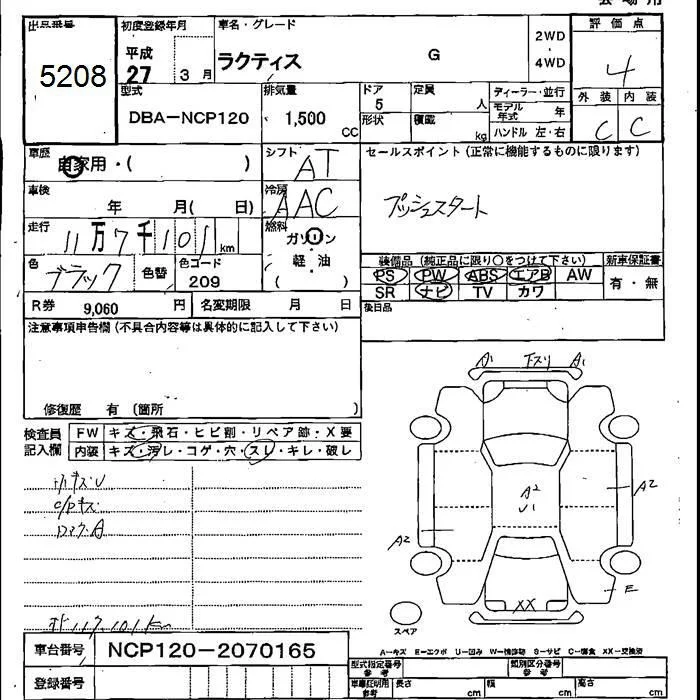 出品番号
5208
初度登録年月
平成
27 3 月
車名・グレード
ラクティス G
2WD
・
4WD
評価点
4
外装 内装
C C
型式
DBA-NCP120
排気量
1,500
CC
ドア
5
形状
定員
人
積載
kg
ディーラー・並行
モデル年式 年
ハンドル 左・右
車歴
自家用・( )
シフト
AT
セールスポイント (正常に機能するものに限ります)
プッシュスタート
車検
年 月( 日)
冷房
AAC
走行
11万7千101km
燃料
ガソリン
・
軽・油
・
( )
色
ブラック
色替
色コード
209
装備品 (純正品に限り○をつけて下さい)
PS PW ABS エアB AW
SR ナビ TV カワ
新車保証書
有・無
後日品
R券 9,060 円
名変期限 月 日
注意事項申告欄 (不具合内容等は具体的に記入して下さい)
修復歴 有 〔箇所 〕
検査員
記入欄
FW キズ・飛石・ヒビ割・リペア跡・X要
内装 キズ・汚レ・コゲ・穴・スレ・キレ・破レ
117,101km
A1 下スリ A1
A2
U1
A2
A2
E
XX
スペア
A-キズ E-エクボ U-凹み W-補修跡 S-サビ C-腐食 XX-交換済
車台番号 NCP120-2070165
登録番号
型式指定番号
類別区分番号
車庫証明用
参考
長さ cm
幅 cm
高さ cm